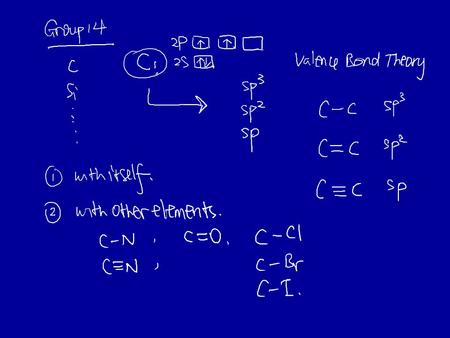 Group 14
C
Si
C:
2P ↑ ↑
2S ↑↓
sp³
sp²
sp
Valence Bond Theory
C-C sp³
C=C sp²
C≡C sp
① with itself.
② with other elements.
C-N, C=O, C-Cl
C≡N, C-Br
C-I.